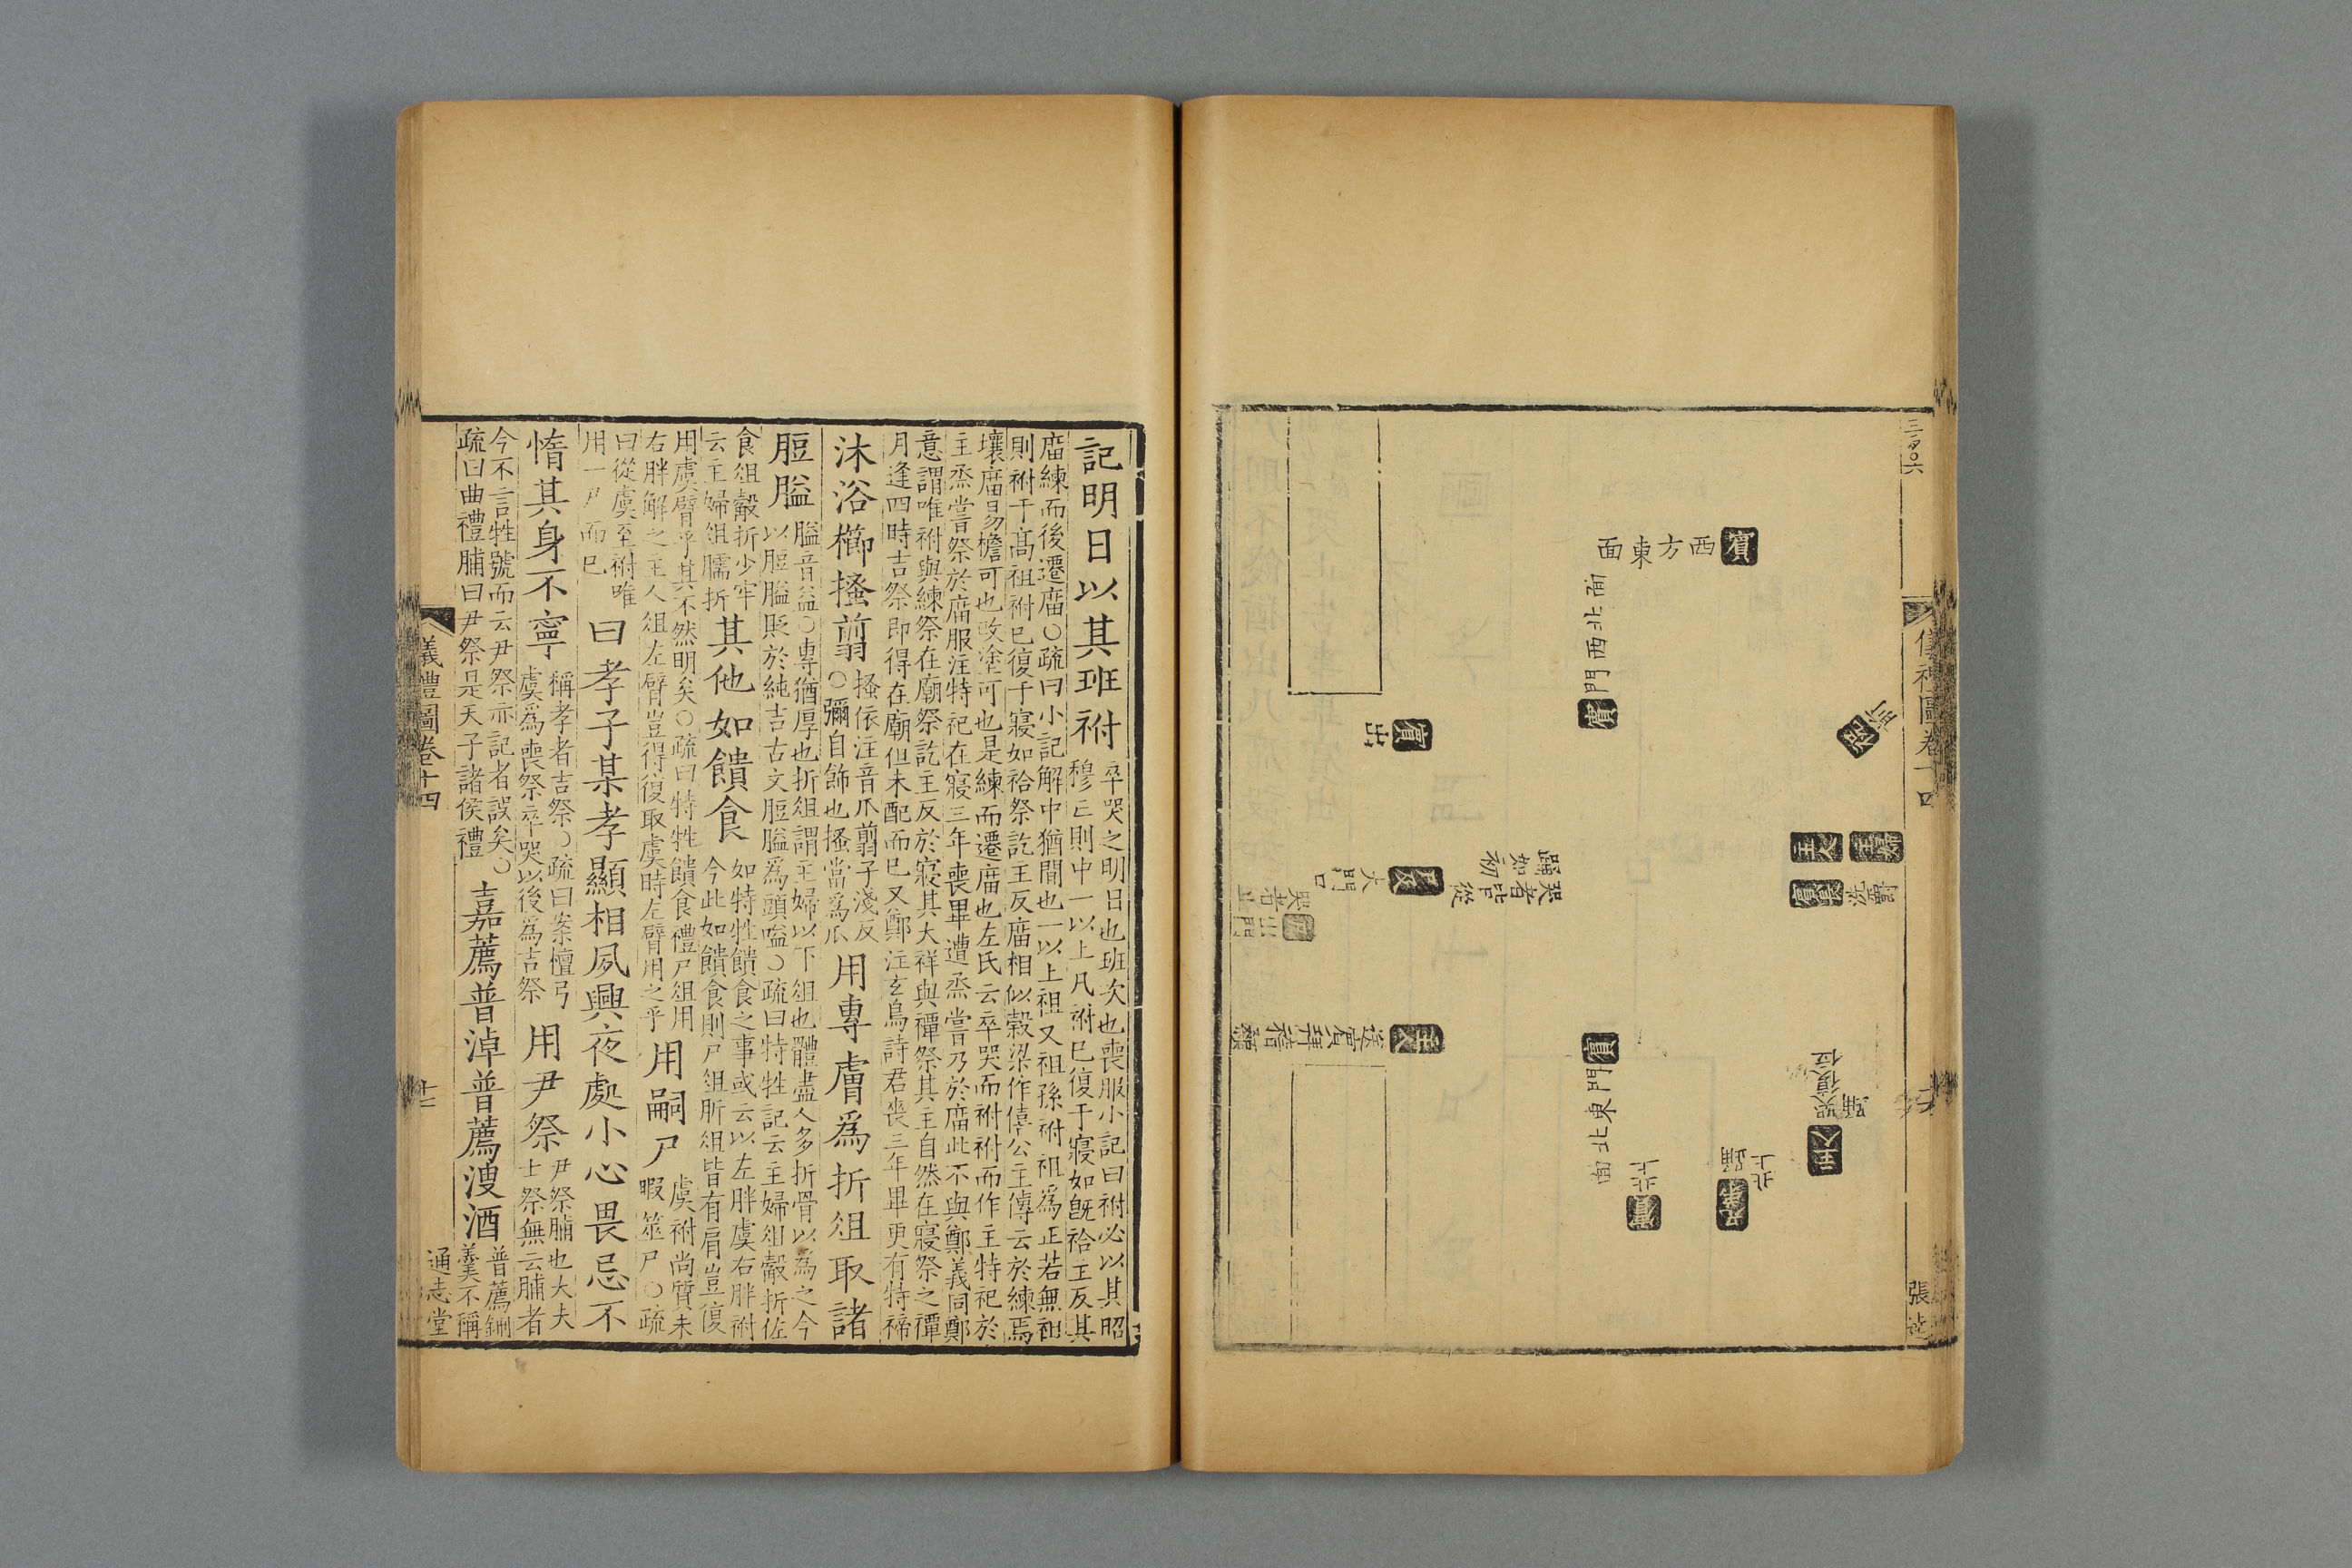 儀禮圖卷十四
主婦
洗爵
主人
賓長
祝
前
主人
哭復位
踊
兄弟
北上
踊
賓
西方東面
賓
北上
賓
門西北面
賓
門東北面
哭者皆從
踊如初
賓
出
尸
大門口
主人
送賓拜稽顙
尸
出門
哭者止
記明日以其班祔
卒哭之明日也班次也喪服小記曰祔必以其昭
穆亡則中一以上凡祔已復于寢如旣祫主反其
廟練而後遷廟○疏曰小記解中猶間也一以上祖又祖孫祔祖爲正若無祖
則祔于髙祖祔已復于寢如祫祭訖主反廟相似榖梁作僖公主傳云於練焉
壞廟易檐可也改塗可也是練而遷廟也左氏云卒哭而祔祔而作主特祀於
主烝嘗祭於廟服注特祀在寢三年喪畢遭烝嘗乃於廟此不與鄭義同鄭
意謂唯祔與練祭在廟祭訖主反於寢其大祥與禫祭其主自然在寢祭之禫
月逢四時吉祭即得在廟但未配而已又鄭注玄鳥詩君喪三年畢更有特禘
沐浴櫛搔翦
搔依注音爪翦子淺反
○彌自飾也搔當爲爪
用專膚爲折俎取諸
脰膉
膉音益○專猶厚也折俎謂主婦以下俎也體盡人多折骨以爲之今
以脰膉貶於純吉古文脰膉爲頭嗌○疏曰特牲記云主婦俎觳折佐
食俎觳折少牢
云主婦俎臑折
其他如饋食
如特牲饋食之事或云以左胖虞右胖祔
今此如饋食則尸俎肵俎皆有肩豈復
用虞臂乎其不然明矣○疏曰特牲饋食禮尸俎用
右胖解之主人俎左臂豈得復取虞時左臂用之乎
用嗣尸
虞祔尚質未
暇筮尸○疏
曰從虞至祔唯
用一尸而已
曰孝子某孝顯相夙興夜處小心畏忌不
惰其身不寧
稱孝者吉祭○疏曰案檀弓
虞爲喪祭卒哭以後爲吉祭
用尹祭
尹祭脯也大夫
士祭無云脯者
今不言牲號而云尹祭亦記者誤矣○
疏曰曲禮脯曰尹祭是天子諸侯禮
嘉薦普淖普薦溲酒
普薦鉶
羹不稱
儀禮圖卷十四
十二
通志堂